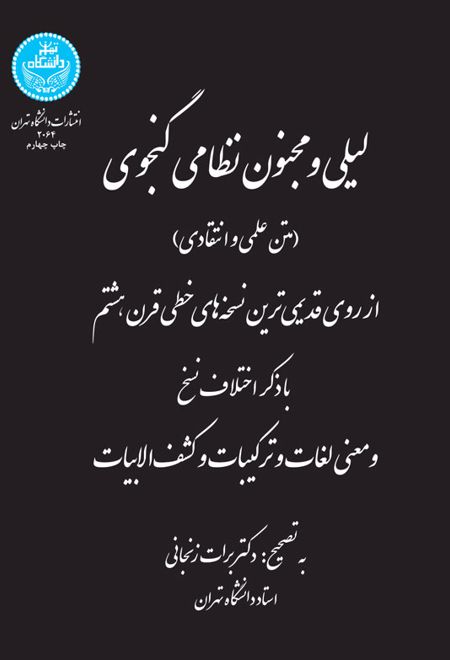 دانشگاه
تهران
انتشارات دانشگاه تهران
۲۰۶۴
چاپ چهارم
لیلی و مجنون نظامی گنجوی
(متن علمی و انتقادی)
از روی قدیمی‌ترین نسخه‌های خطی قرن هشتم
با ذکر اختلاف نسخ
و معنی لغات و ترکیبات و کشف الابیات
به تصحیح: دکتر برات زنجانی
استاد دانشگاه تهران